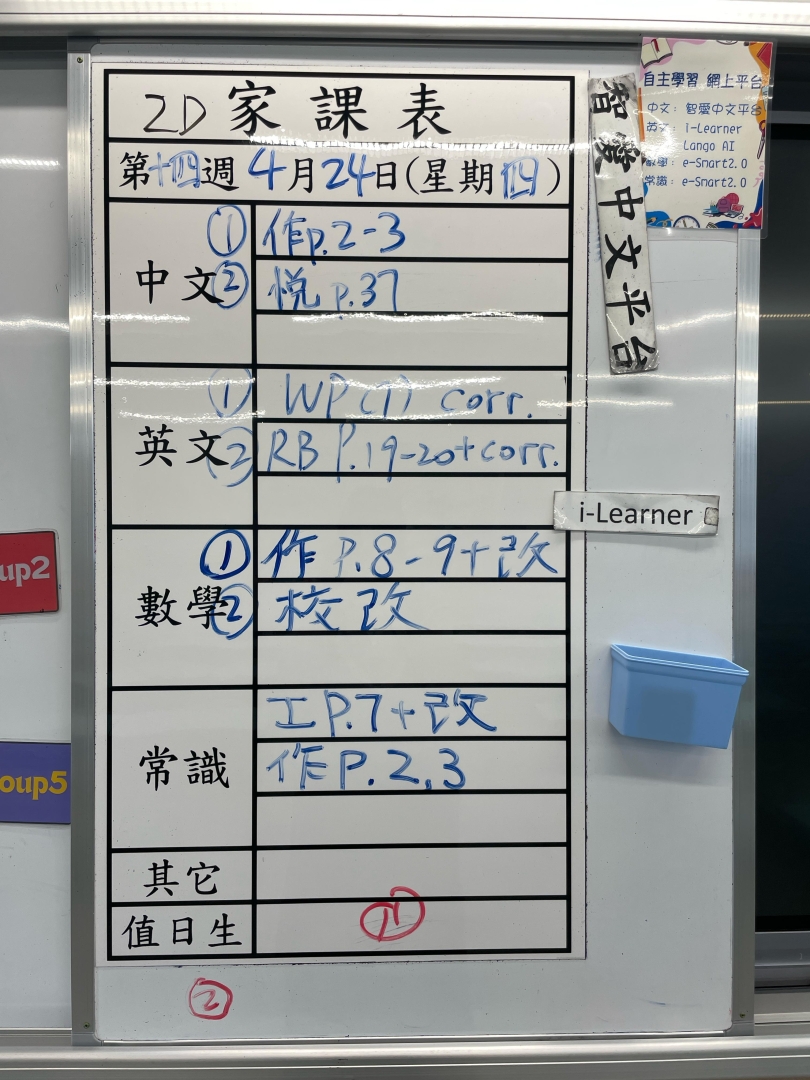 2D 家課表
第十四週 4月24日(星期四)
中文
① 作p.2-3
② 悦 p.37
英文
① WP(7) corr.
② RB P.19-20+corr.
數學
① 作 P.8-9+改
② 校改
常識
工P.7+改
作P.2,3
其它
值日生
11
②
智愛中文平台
自主學習 網上平台
中文: 智愛中文平台
英文: i-Learner
Lango AI
數學: e-Smart2.0
常識: e-Smart2.0
i-Learner
up2
oup5